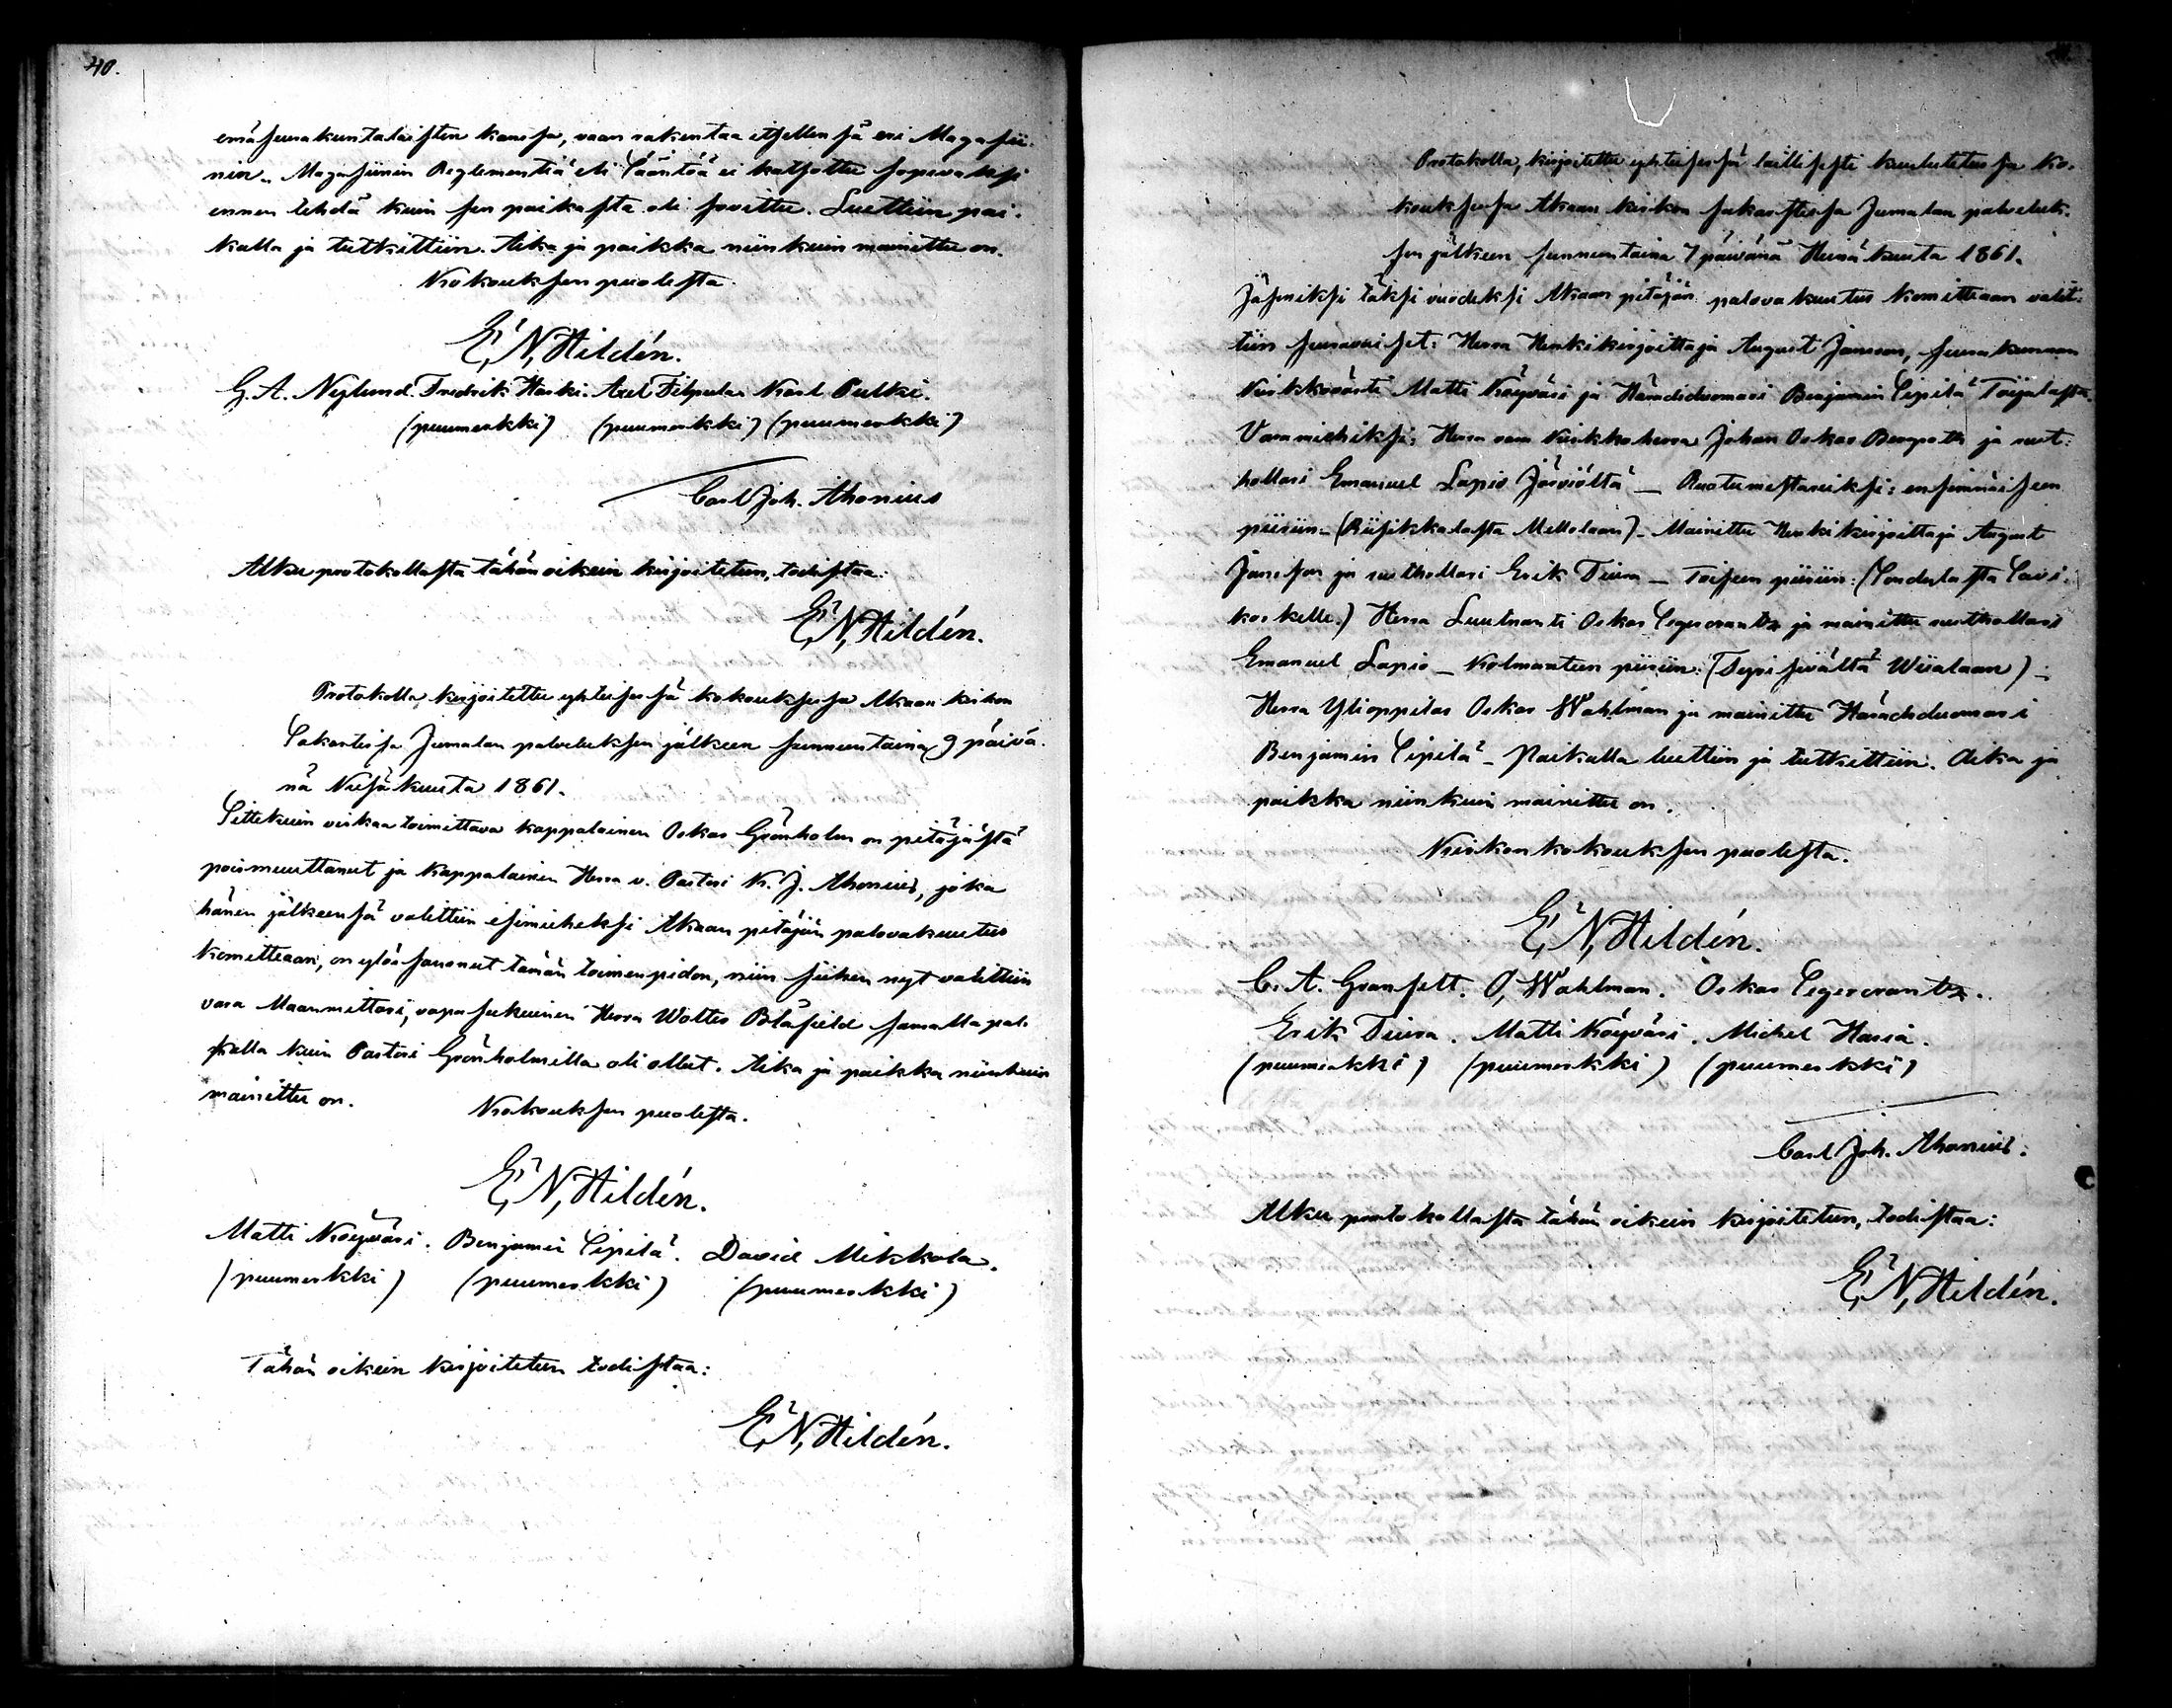 40.
emäseurakuntalaisten kanssa, vaan rakentaa itsellensä eri Magasii-
nin. Magasiinin Reglementiä eli Sääntöä ei katsottu sopivaksi
ennen tehdä kuin sen paikasta oli sovittu. Luettiin pai-
kalla ja tutkittiin. Aika ja paikka niinkuin mainittu on.
Kokouksen puolesta.
E, N, Hildén.
G. A. Neglund. Fredrik Haski. Axel Filpula. Karl Pulki.
(puumerkki) (puumerkki) (puumerkki)
Carl Joh. Ahonius
Alku protokollasta tähän oikein kirjoitetun, todistaa:
E, N, Hildén.
Protokolla, kirjoitettu yhteisessä kokouksessa Akaan kirkon
Sakastissa Jumalan palveluksen jälkeen sunnuntaina 9 päivä-
nä Kesäkuuta 1861.
Sittekuin virkaa toimittava kappalainen Oskar Grönholm on pitäjästä
poismuuttanut ja kappalainen Herra v. Pastori K. J. Ahonius, joka
hänen jälkeensä valittiin esimieheksi Akaan pitäjän palovakuutus
Komitteaan, on ylössanonut tämän toimenpidon, niin siihen nyt valittiin
vara Maanmittari, vapasukuinen Herra Wolter Blåfield samalla pal-
kalla kuin Pastori Grönholmilla oli ollut. Aika ja paikka niinkuin
mainittu on.
Kokouksen puolesta.
E, N, Hildén.
Matti Köyväri. Benjamin Sipilä. David Mikkola.
(puumerkki) (puumerkki) (puumerkki)
Tähän oikein kirjoitetun todistaa:
E, N, Hildén.
Protokolla, kirjoitettu yhteisessä laillisesti kuulutetussa ko-
kouksessa Akaan kirkon sakastissa Jumalan palveluk-
sen jälkeen sunnuntaina 7 päivänä Heinäkuuta 1861.
Jäseniksi täksi vuodeksi Akaan pitäjän palovakuutus Komitteaan valit-
tiin seuraavaiset: Herra Henkikirjoittaja August Jansson, seurakunnan
Kirkkoväärti Matti Köyväri ja Häradsdomari Benjamin Sipilä Toijalasta.
Varamiehiksi: Herra vara Kirkkoherra Johan Oskar Bergroth ja rust-
hollari Emanuel Lapio Järviöltä — Ruotumestareiksi: ensimmäiseen
piiriin. (Riisikkalasta Mellolaan) - Mainittu Henkikirjoittaja August
Jansson ja rusthollari Erik Tiura — Toiseen piiriin: (Sondulasta Savi-
koskelle.) Herra Luutnanti Oskar Segercrantz ja mainittu rusthollari
Emanuel Lapio — Kolmanteen piiriin: (Terisjvältä Wiialaan) -
Herra Ylioppilas Oskar Wahlman ja mainittu Häradsdomari
Benjamin Sipilä - Paikalla luettiin ja tutkittiin. Aika ja
paikka niinkuin mainittu on.
Kirkonkokouksen puolesta.
E, N, Hildén.
C. A. Granfelt. O, Wahlman. Oskar Segercrantz.
Erik Tiura. Matti Köyväri. Michel Haria.
(puumerkki) (puumerkki) (puumerkki)
Carl Joh. Ahonius.
Alku protokollasta tähän oikein kirjoitetun, todistaa:
E, N, Hildén.